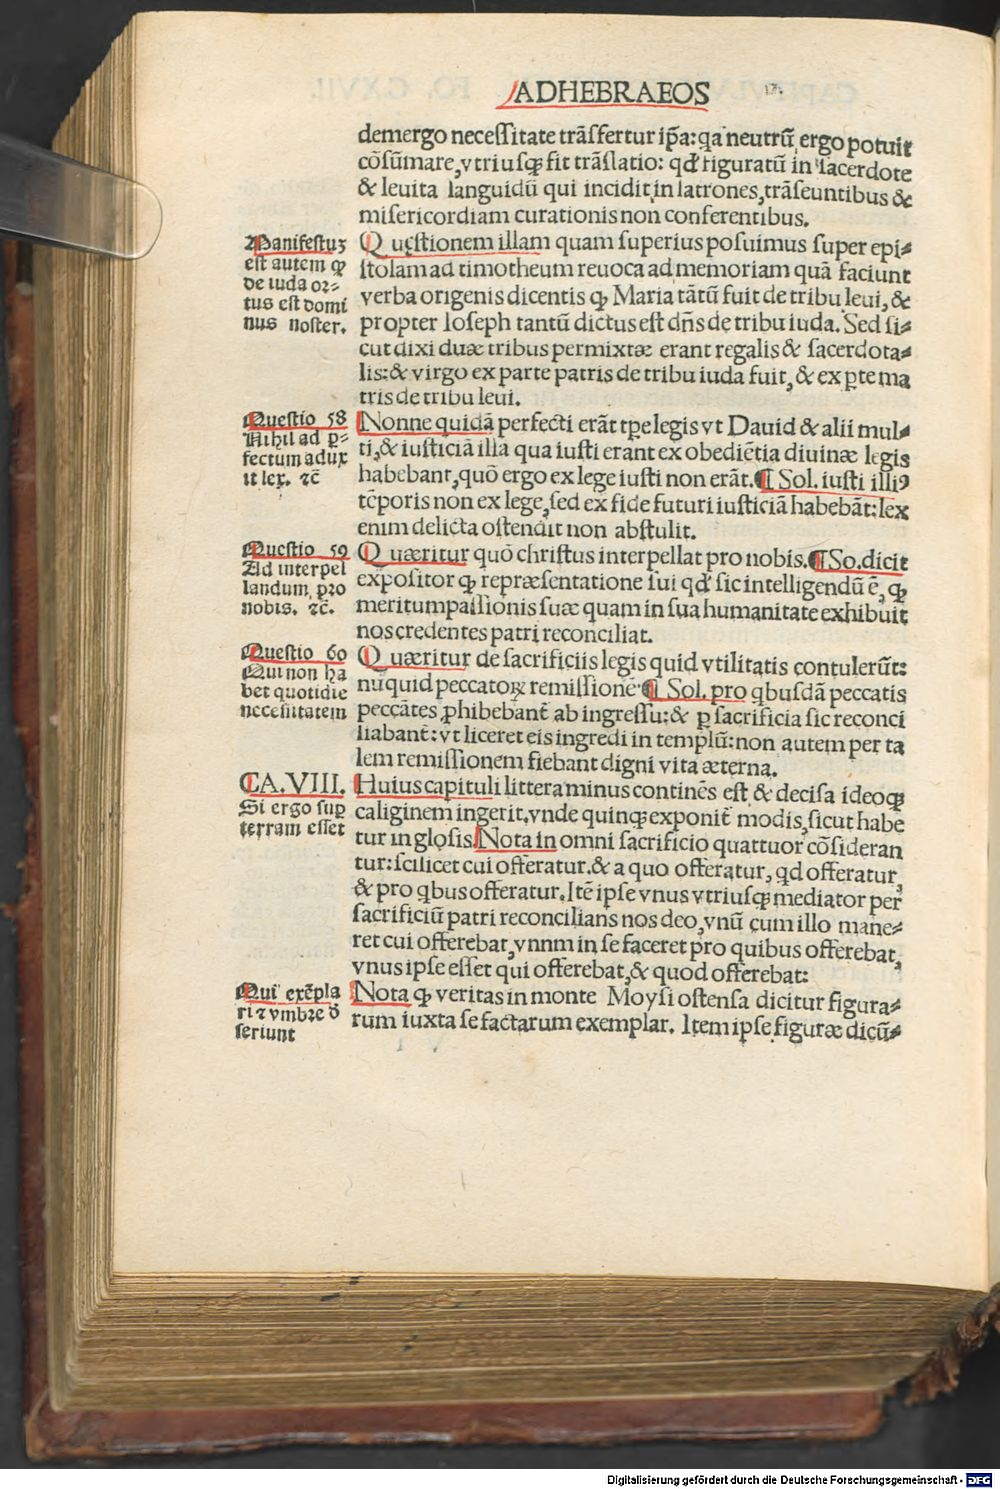 ADHEBRAEOS
demergo necessitate trãsfertur ip̃a: qa neutrũ ergo potuit
cõsũmare, vtriusqꝫ fit trãslatio: qď figuratũ in sacerdote
& leuita languidũ qui incidit in latrones, trãseuntibus &
misericordiam curationis non conferentibus.
Manifestuʒ
est autem ꝙ
de iuda or⸗
tus est domi
nus noster.
Quęstionem illam quam superius posuimus super epi⸗
stolam ad timotheum reuoca ad memoriam quã faciunt
verba origenis dicentis ꝙ Maria tãtũ fuit de tribu leui, &
propter Ioseph tantũ dictus est dñs de tribu iuda. Sed si⸗
cut dixi duæ tribus permixtæ erant regalis & sacerdota⸗
lis: & virgo ex parte patris de tribu iuda fuit, & ex ꝑte ma
tris de tribu leui.
Questio 58
Nihil ad ꝑ⸗
fectum adux
it lex. ⁊c̃
Nonne quidã perfecti erãt tꝑe legis vt Dauid & alii mul⸗
ti, & iusticiã illa qua iusti erant ex obediẽtia diuinæ legis
habebant, quõ ergo ex lege iusti non erãt. ¶ Sol. iusti illiꝰ
tẽporis non ex lege, sed ex fide futuri iusticiã habebãt: lex
enim delicta ostendit non abstulit.
Questio 59
Ad interpel
landum pro
nobis. ⁊c̃.
Quæritur quõ christus interpellat pro nobis. ¶ So. dicit
expositor ꝙ repræsentatione sui qď sic intelligendũ ẽ, ꝙ
meritum passionis suæ quam in sua humanitate exhibuit
nos credentes patri reconciliat.
Questio 60
Qui non ha
bet quotidie
necessitatem
Quæritur de sacrificiis legis quid vtilitatis contulerũt:
nũquid peccatoꝝ remissionẽ ¶ Sol. pro qbusdã peccatis
peccãtes ꝓhibebant̃ ab ingressu: & ꝑ sacrificia sic reconci
liabant̃: vt liceret eis ingredi in templũ: non autem per ta
lem remissionem fiebant digni vita æterna.
CA. VIII.
Si ergo suꝑ
terram esset
Huius capituli littera minus continẽs est & decisa ideoqꝫ
caliginem ingerit, vnde quinqꝫ exponit̃ modis, sicut habe
tur in glosis. Nota in omni sacrificio quattuor cõsideran
tur: scilicet cui offeratur. & a quo offeratur, qd offeratur,
& pro qbus offeratur. Itẽ ipse vnus vtriusqꝫ mediator per
sacrificiũ patri reconcilians nos deo, vnũ cum illo mane⸗
ret cui offerebat, vnnm in se faceret pro quibus offerebat,
vnus ipse esset qui offerebat, & quod offerebat:
Qui exẽpla
ri ⁊ vmbre ď
seriunt
Nota ꝙ veritas in monte Moysi ostensa dicitur figura⸗
rum iuxta se factarum exemplar. Item ipse figuræ dicũ⸗
Digitalisierung gefördert durch die Deutsche Forschungsgemeinschaft - DFG